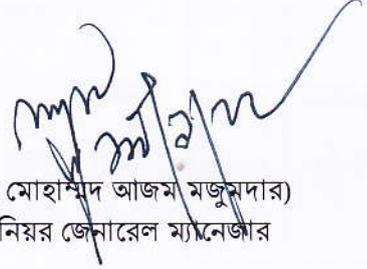 মোহাম্মদ আজম মজুমদার)
নিয়র জেনারেল ম্যানেজার